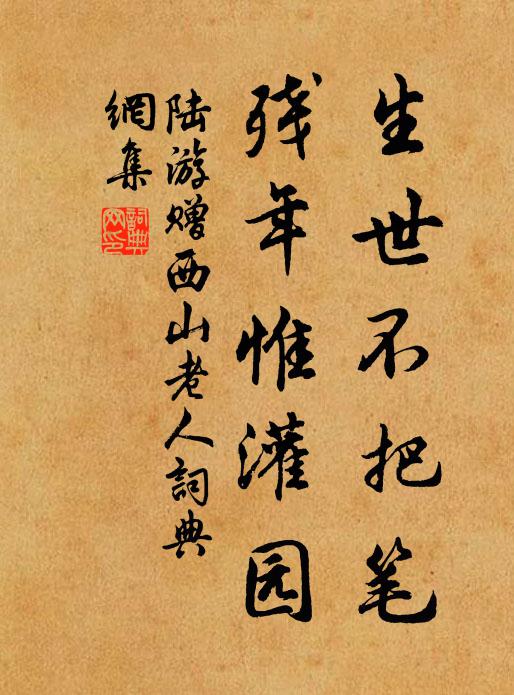 生世不把笔
残年惟灌园
陆游赠西山老人詞典
網集
詞典
网印